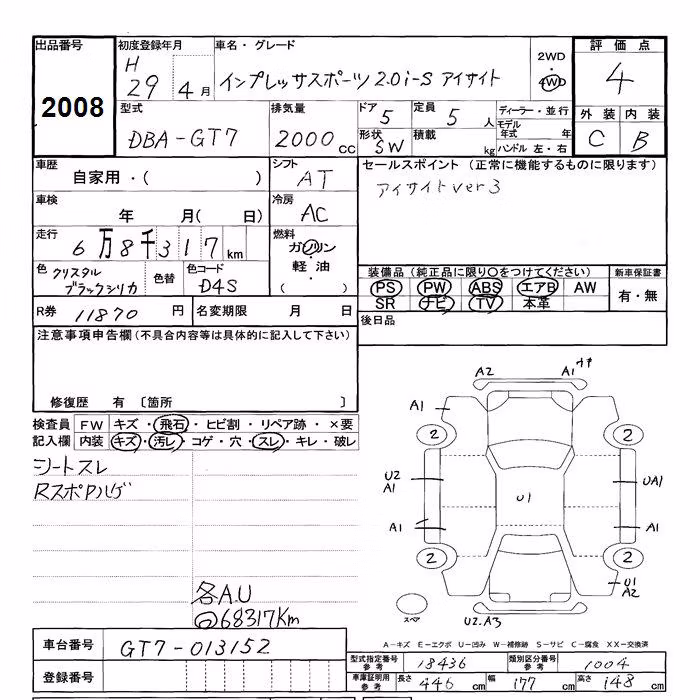 出品番号
2008
初度登録年月
H
29 4月
車名・グレード
インプレッサスポーツ 2.0i-S アイサイト
2WD
・
4WD
評価点
4
外装 内装
C B
型式
DBA-GT7
排気量
2000cc
ドア 5
定員 5人
形状 SW
積載 kg
ディーラー・並行
モデル年式 年
ハンドル 左・右
車歴
自家用・( )
シフト
AT
車検
年 月( 日)
冷房
AC
走行
6万8千317km
燃料
ガソリン
・
軽油
( )
色 クリスタル
ブラックシリカ
色替
色コード
D4S
R券 11870円
名変期限 月 日
セールスポイント (正常に機能するものに限ります)
アイサイトver3
装備品 (純正品に限り○をつけてください)
PS PW ABS エアB AW
SR ナビ TV 本革
新車保証書
有・無
後日品
注意事項申告欄(不具合内容等は具体的に記入して下さい)
修復歴 有 〔箇所 〕
検査員記入欄
FW キズ・飛石・ヒビ割・リペア跡・×要
内装 キズ・汚レ・コゲ・穴・スレ・キレ・破レ
シートスレ
RスポPハゲ
各A.U
◎68317Km
A2 A1
A1
2 2
U2
A1
UA1
U1
A1 A1
2 2
U1
A2
スペア
U2.A3
A-キズ E-エクボ U-凹み W-補修跡 S-サビ C-腐食 XX-交換済
車台番号 GT7-013152
登録番号
型式指定番号参考 18436
類別区分番号参考 1004
車庫証明用参考 長さ 446cm 幅 177cm 高さ 148cm